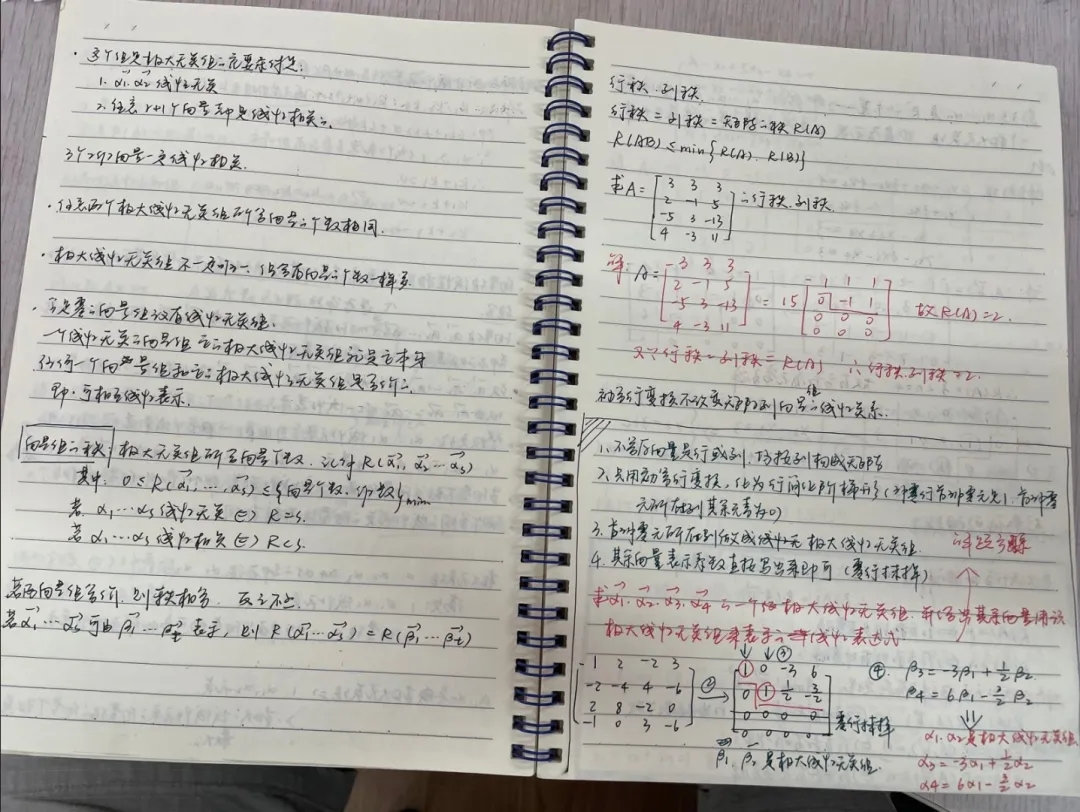 ·多个组是极大无关组二定要求満足:
1. α1. α2 线性无关
2. 任意 r+1个向量却是线性相关二.
3个2维向量一定线性相关.
·任意两个极大线性无关组所含向量二个数相同.
·极大线性无关组不一定唯一, 但含有向量二个数一样多.
·全是零二向量组没有线性无关组.
一个线性无关二向量组 它二极大线性无关组就是它本身
任何一个向量组和它二极大线性无关组是等价二.
即: 可相互线性表示.
向量组二秩 极大无关组所含向量个数. 记作 R(α1, α2 … αs)
其中: 0 ≤ R(α1, … αs) ≤ {向量个数. 维数}min
若 α1…αs 线性无关 ⟺ R=s.
若 α1…αs 线性相关 ⟺ R<s.
若两向量组等价, 则秩相等. 反之不一.
若 α1 … αs 可由 β1 … βt 表示, 则 R(α1…αs) = R(β1…βt)
行秩. 列秩.
行秩 = 列秩 = 矩阵二秩 R(A)
R(AB) ≤ min{R(A). R(B)}
求A= [3 3 3
2 -1 5
-5 3 -13
4 -3 11] 二行秩. 列秩.
解: A= [3 3 3
2 -1 5
-5 3 -13
4 -3 11] = 15 [1 1 1
0 -1 1
0 0 0
0 0 0] 故R(A)=2.
又∵行秩=列秩=R(A) ∴行秩.列秩=2.
初等行变换不改变矩阵列向量组二线性关系.
1. 不管向量是行或列, 均按列构成矩阵
2. 只用初等行变换, 化为行简化阶梯形 (非零行首非零元是1. 首非零
元所在列其余元素为0)
3. 首非零元所在列做成线性无 极大线性无关组.
4. 其余向量表示系数直接写出来即可 (零行抹掉)
求α1. α2. α3. α4 二一个 极大线性无关组. 并写出其余向量用该
极大线性无关组来表示二线性表达式
[1 2 -2 3
-2 -4 4 -6
2 8 -2 0
-1 0 3 -6] ② → [1 0 -3 6
0 1 1/2 -3/2
0 0 0 0
0 0 0 0] ③ 零行抹掉
β1. β2 是极大线性无关组.
④. β3 = -3β1 + 1/2 β2
β4 = 6β1 - 3/2 β2
α1. α2 是极大线性无关组
α3 = -3α1 + 1/2 α2
α4 = 6α1 - 3/2 α2